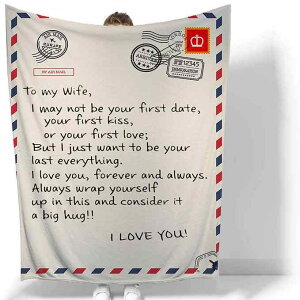 BY AIR MAIL
12345
To my Wife,
I may not be your first date,
your first kiss,
or your first love;
But I just want to be your
last everything.
I love you, forever and always.
Always wrap yourself
up in this and consider it
a big hug!!
I LOVE YOU!